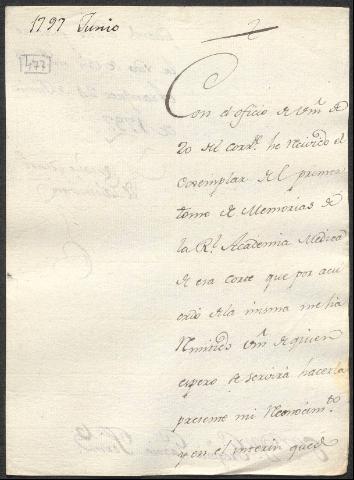 1797 Junio
2
477
Con el oficio de Vm. de
20 del corr.te he recivido el
exemplar del primer
tomo de Memorias de
la Rl. Academia Medica
de esa corte que por acu
erdo de la misma me ha
remitido Vm. de quien
espero se servirá hacerla
presente mi reconocim.to
y en el interin qued